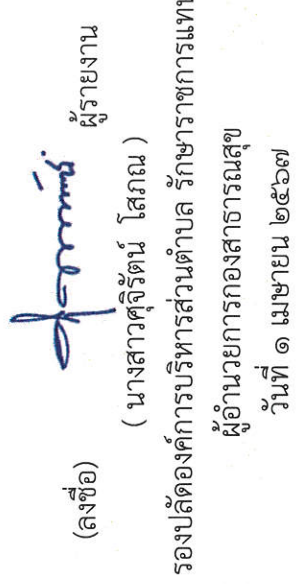 (ลงชื่อ) ผู้รายงาน
( นางสาวศุจิรัตน์ โสภณ )
รองปลัดองค์การบริหารส่วนตำบล รักษาราชการแทน
ผู้อำนวยการกองสาธารณสุข
วันที่ ๑ เมษายน ๒๕๖๗